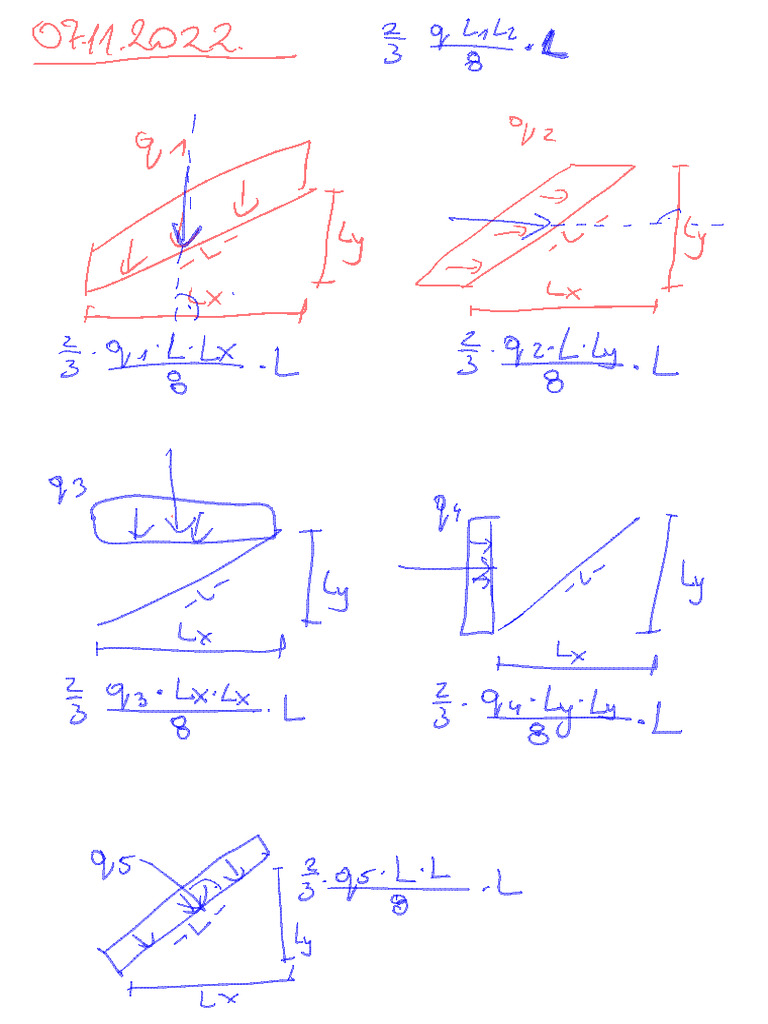 07.11.2022.
2/3 q L1L2/8 · L
q1
Ly
L
Lx
2/3 · q1·L·Lx/8 · L
q2
Ly
L
Lx
2/3 · q2·L·Ly/8 · L
q3
Ly
L
Lx
2/3 q3·Lx·Lx/8 · L
q4
Ly
L
Lx
2/3 · q4·Ly·Ly/8 · L
q5
2/3 · q5·L·L/8 · L
L
Ly
Lx